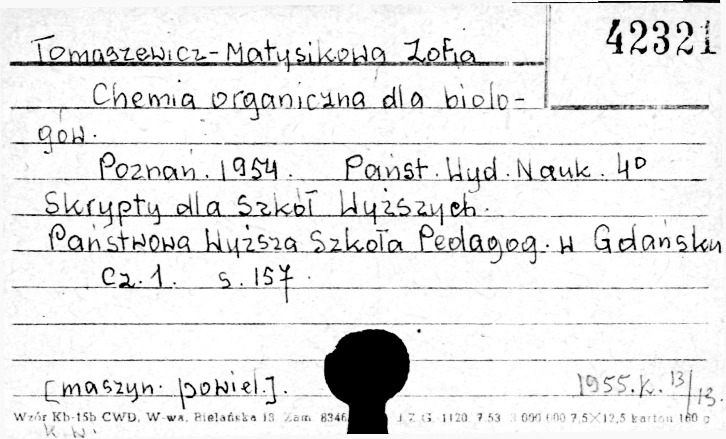 42321
Tomaszewicz-Matysikowa Zofia
Chemia organiczna dla biolo-
gów.
Poznań. 1954. Państ. Wyd. Nauk. 4°
Skrypty dla Szkół Wyższych.
Państwowa Wyższa Szkoła Pedagog. w Gdańsku
Cz. 1. s. 157.
[maszyn. powiel.].
1955.K. 13/13.
Wzór Kb-15b CWD, W-wa, Bielańska 18 Zam. 8346 J.Z.G. 1120 7.53 3 000 000 7,5×12,5 karton 160 g
K.W.